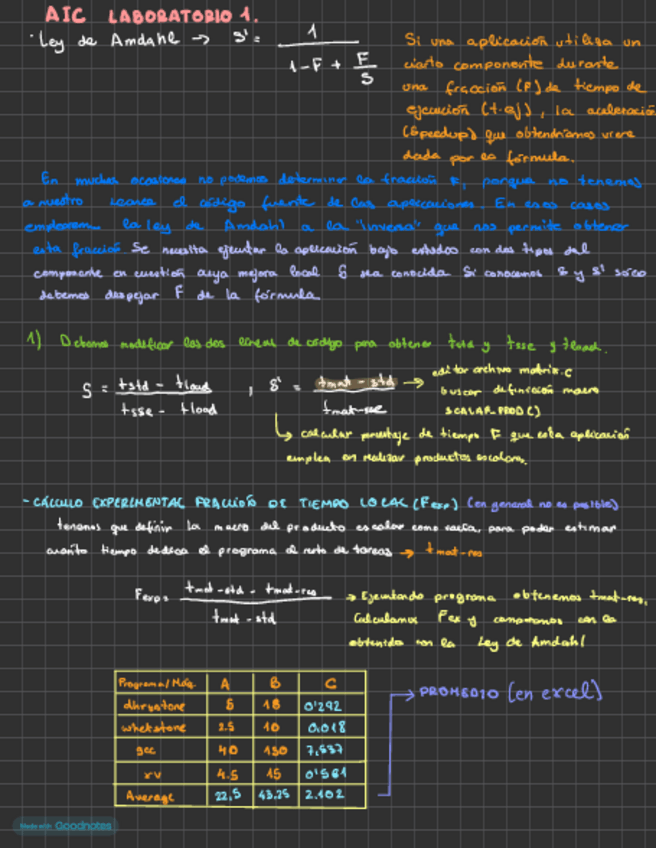 AIC LABORATORIO 1.
· Ley de Amdahl → S' = 1 / (1 - F + F/S)
Si una aplicación utiliza un
cierto componente durante
una fracción (F) de tiempo de
ejecución (t.ej), la aceleración
(Speedup) que obtendríamos viene
dada por la fórmula.
En muchas ocasiones no podemos determinar la fracción F, porque no tenemos
a nuestro alcance el código fuente de las aplicaciones. En esos casos
empleamos la ley de Amdahl a la "inversa" que nos permite obtener
esta fracción Se necesita ejecutar la aplicación bajo estudio con dos tipos del
componente en cuestión cuya mejora local S sea conocida Si conocemos S y S' sólo
debemos despejar F de la fórmula
1) Debemos modificar las dos líneas de código para obtener tstd y tsse y tload.
S = (tstd - tload) / (tsse - tload) , S' = (tmat-std) / (tmat-sse) →
editar archivo matrix.c
buscar definición macro
SCALAR_PROD()
↳ calcular porcentaje de tiempo F que esta aplicación
emplea en realizar productos escalares.
- CÁLCULO EXPERIMENTAL FRACCIÓN DE TIEMPO LOCAL (Fexp) (en general no es posible)
tenemos que definir la macro del producto escalar como vacía, para poder estimar
cuánto tiempo dedica el programa al resto de tareas → tmat-res
Fexp = (tmat-std - tmat-res) / (tmat-std)
→ Ejecutando programa obtenemos tmat-res,
Calculamos Fex y comparamos con la
obtenida con la Ley de Amdahl
Programa/Máq. A B C
dhrystone 18 0'292
whetstone 2.5 10 0,018
gcc 40 130
xv 4.5 15 0'561
Average 22,5 43.25 2.102
→ PROMEDIO (en excel)
Made with Goodnotes